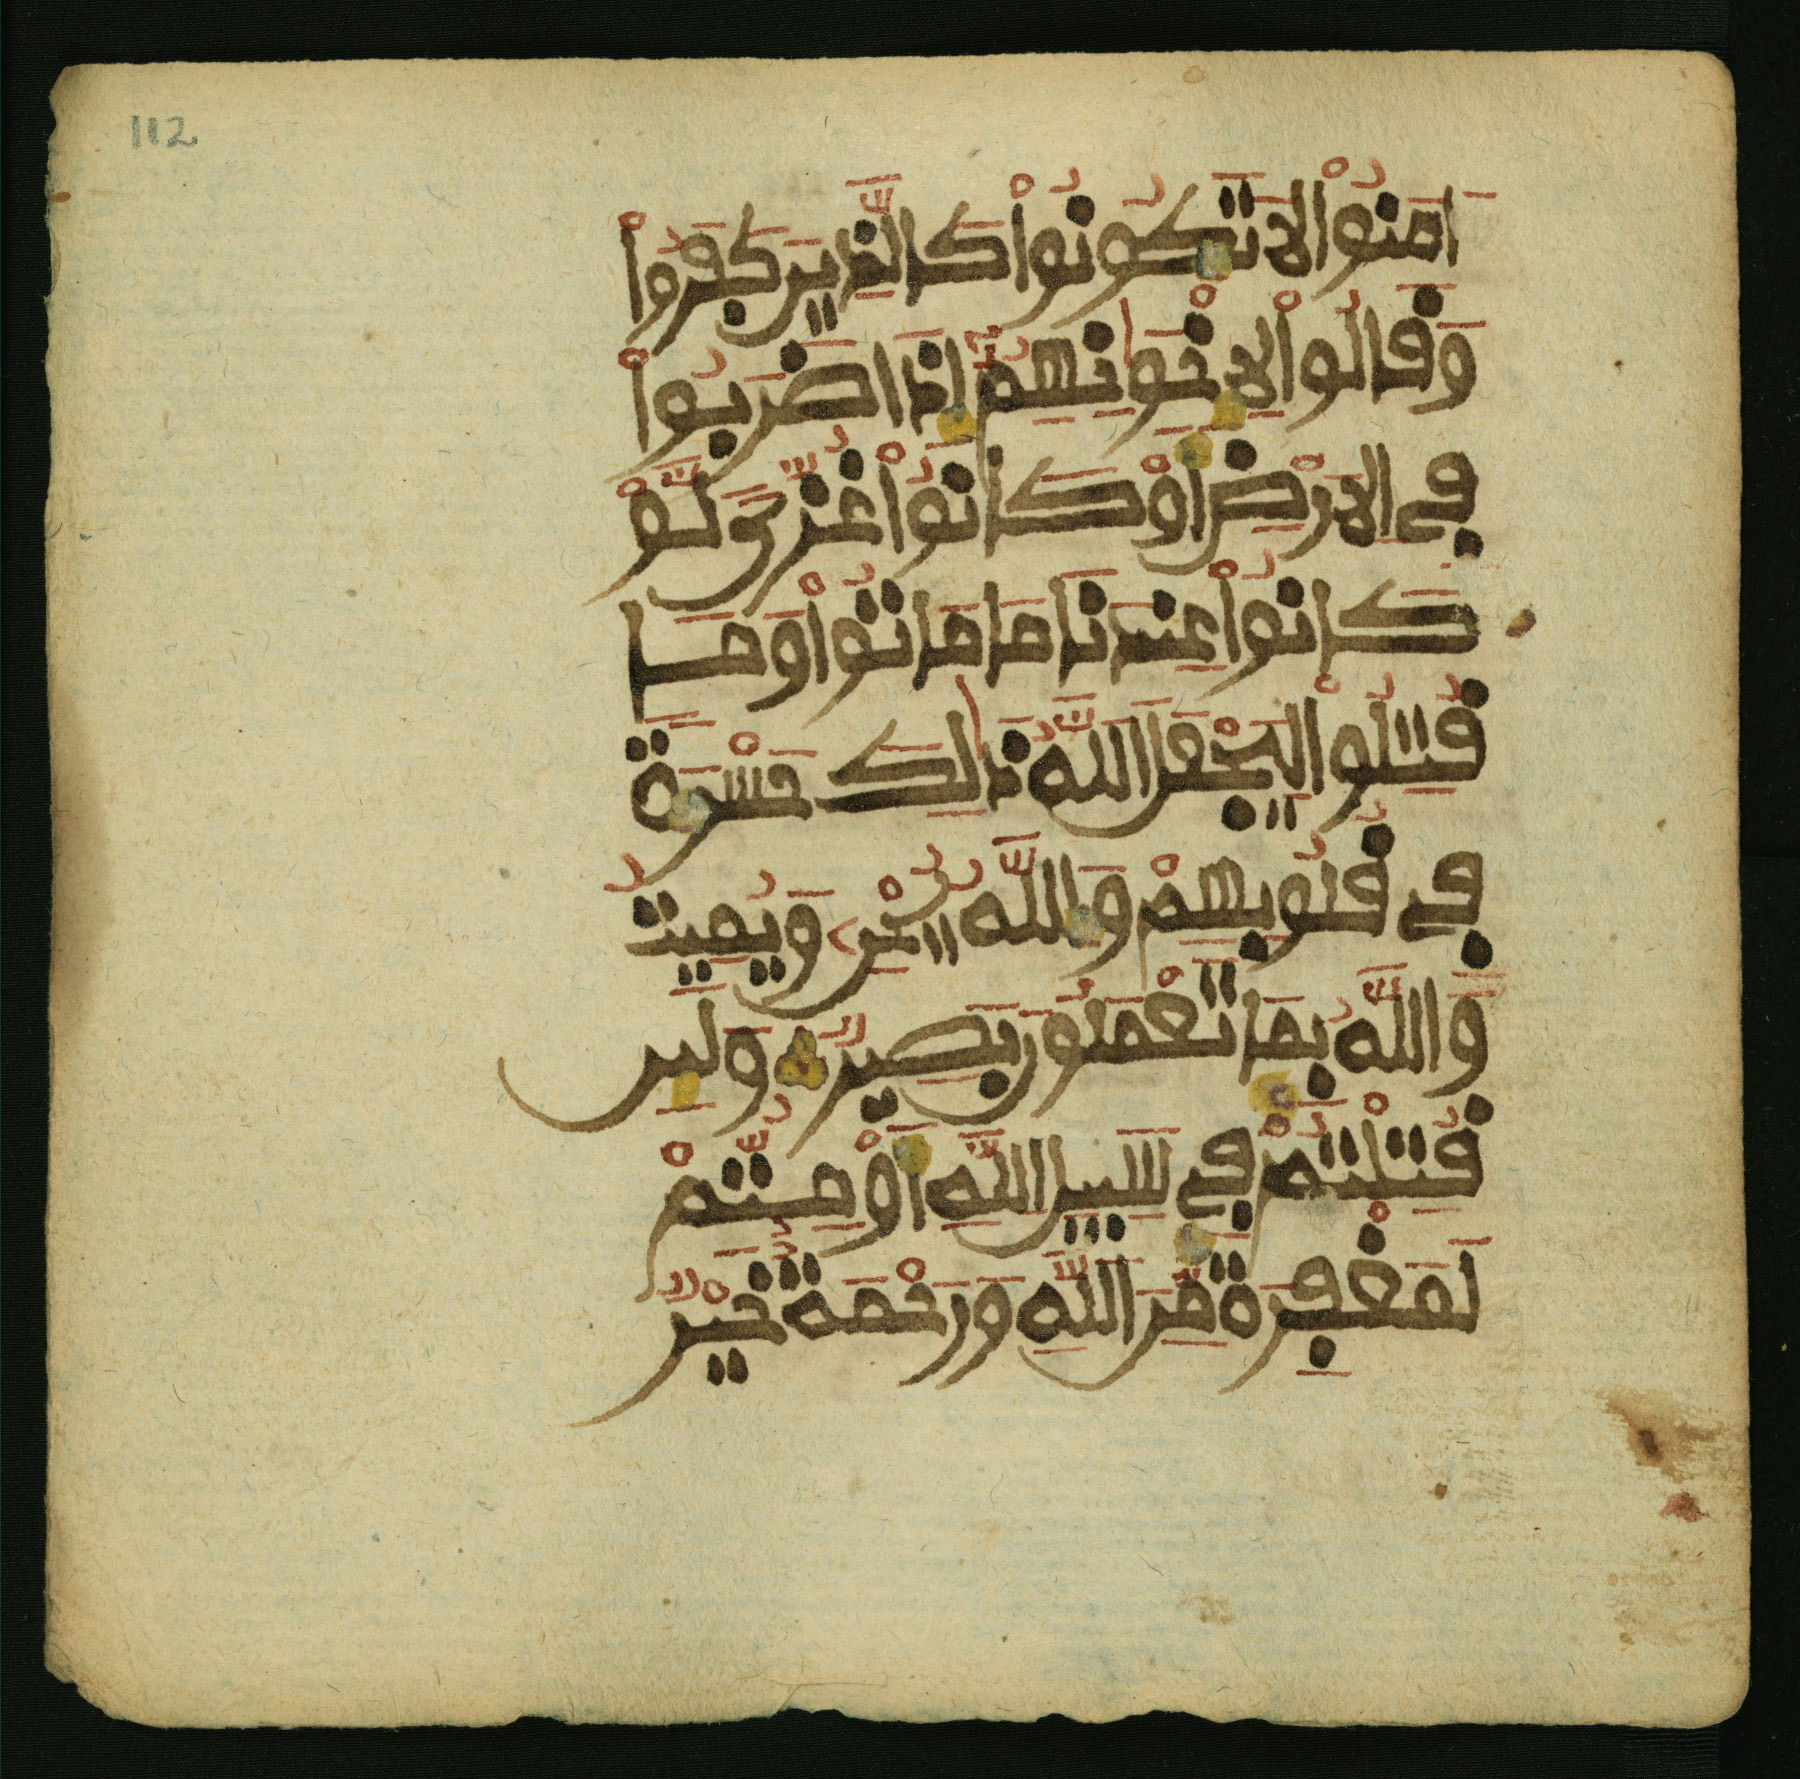 112
ءَامَنُواْ لَا تَكُونُواْ كَالَّذِينَ كَفَرُواْ
وَقَالُواْ لِإِخْوَانِهِمُۥٓ إِذَا ضَرَبُواْ
فِي الَارْضِ أَوْ كَانُواْ غُزّىً لَّوْ
كَانُواْ عِندَنَا مَا مَاتُواْ وَمَا
قُتِلُواْ لِيَجْعَلَ اللَّهُ ذَالِكَ حَسْرَةً
فِي قُلُوبِهِمْ وَاللَّهُ يُحْيِۦ وَيُمِيتُ
وَاللَّهُ بِمَا تَعْمَلُونَ بَصِيرٌ وَلَئِن
قُتِلْتُمْ فِي سَبِيلِ اللَّهِ أَوْ مِتُّمْ
لَمَغْفِرَةٌ مِّنَ اللَّهِ وَرَحْمَةٌ خَيْرٌ